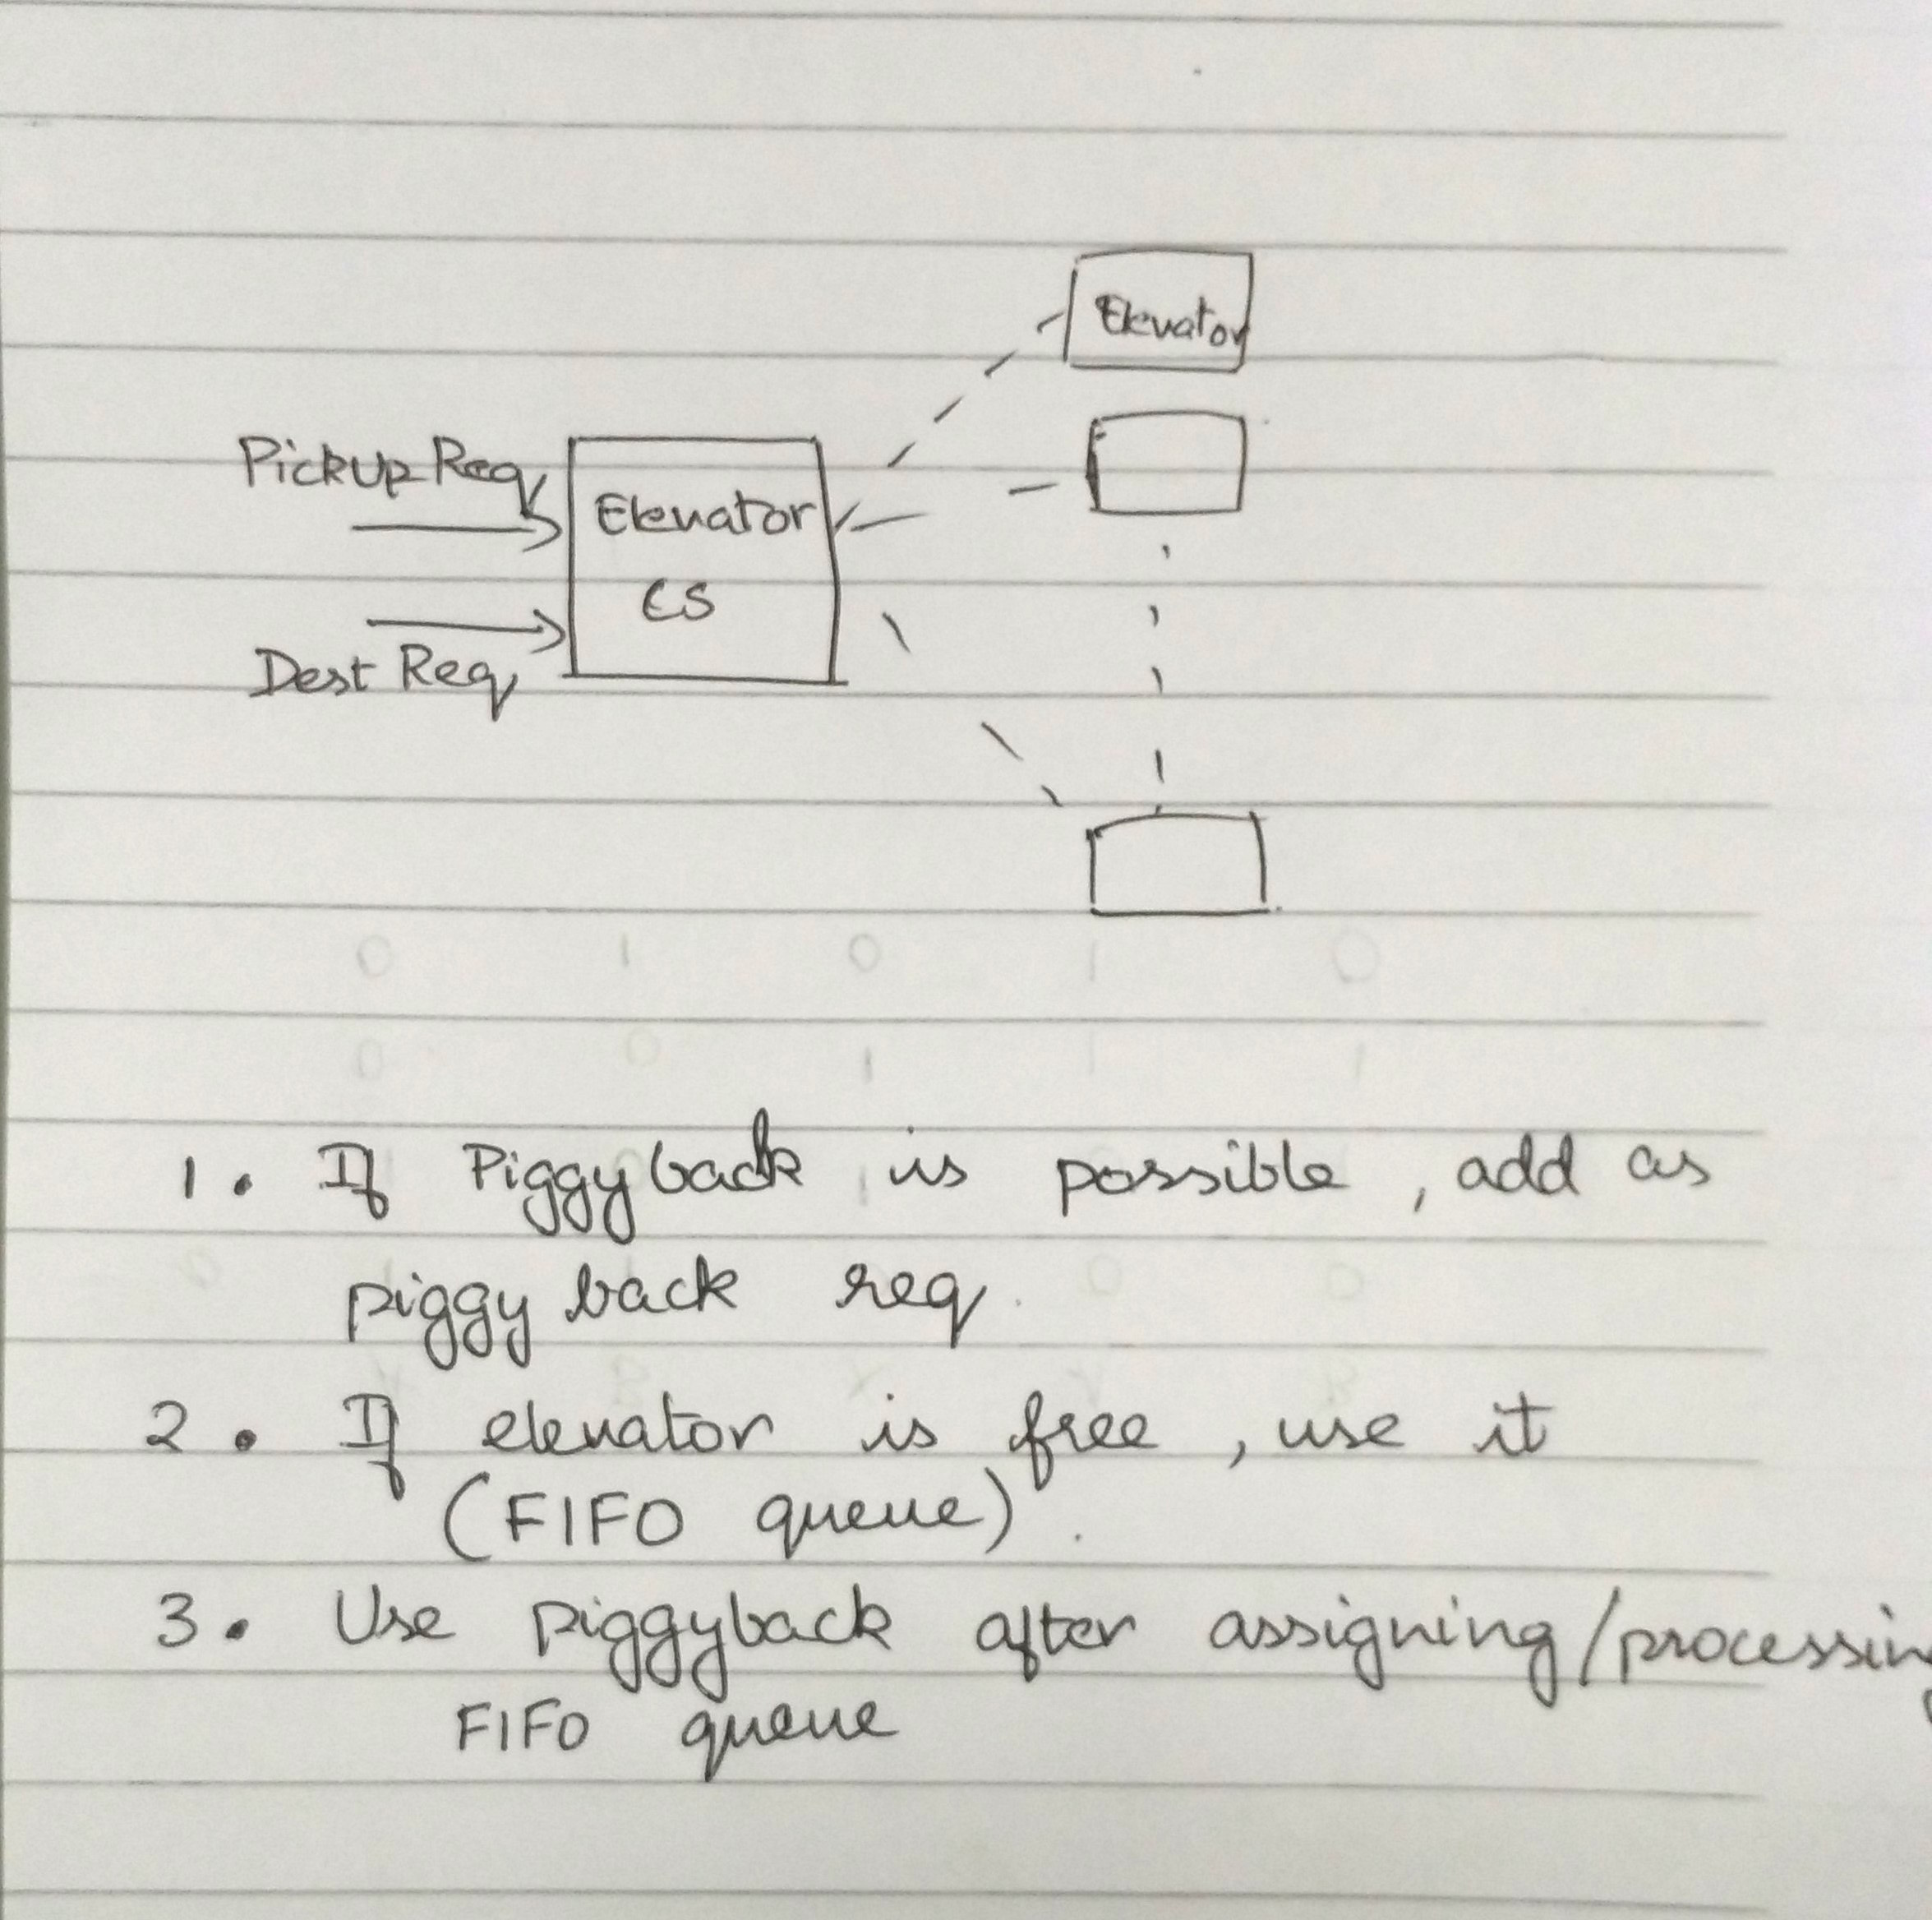 Elevator
Pickup Req
Elevator
CS
Dest Req
1. If Piggyback is possible, add as
piggyback req.
2. If elevator is free, use it
(FIFO queue).
3. Use piggyback after assigning/processing
FIFO queue